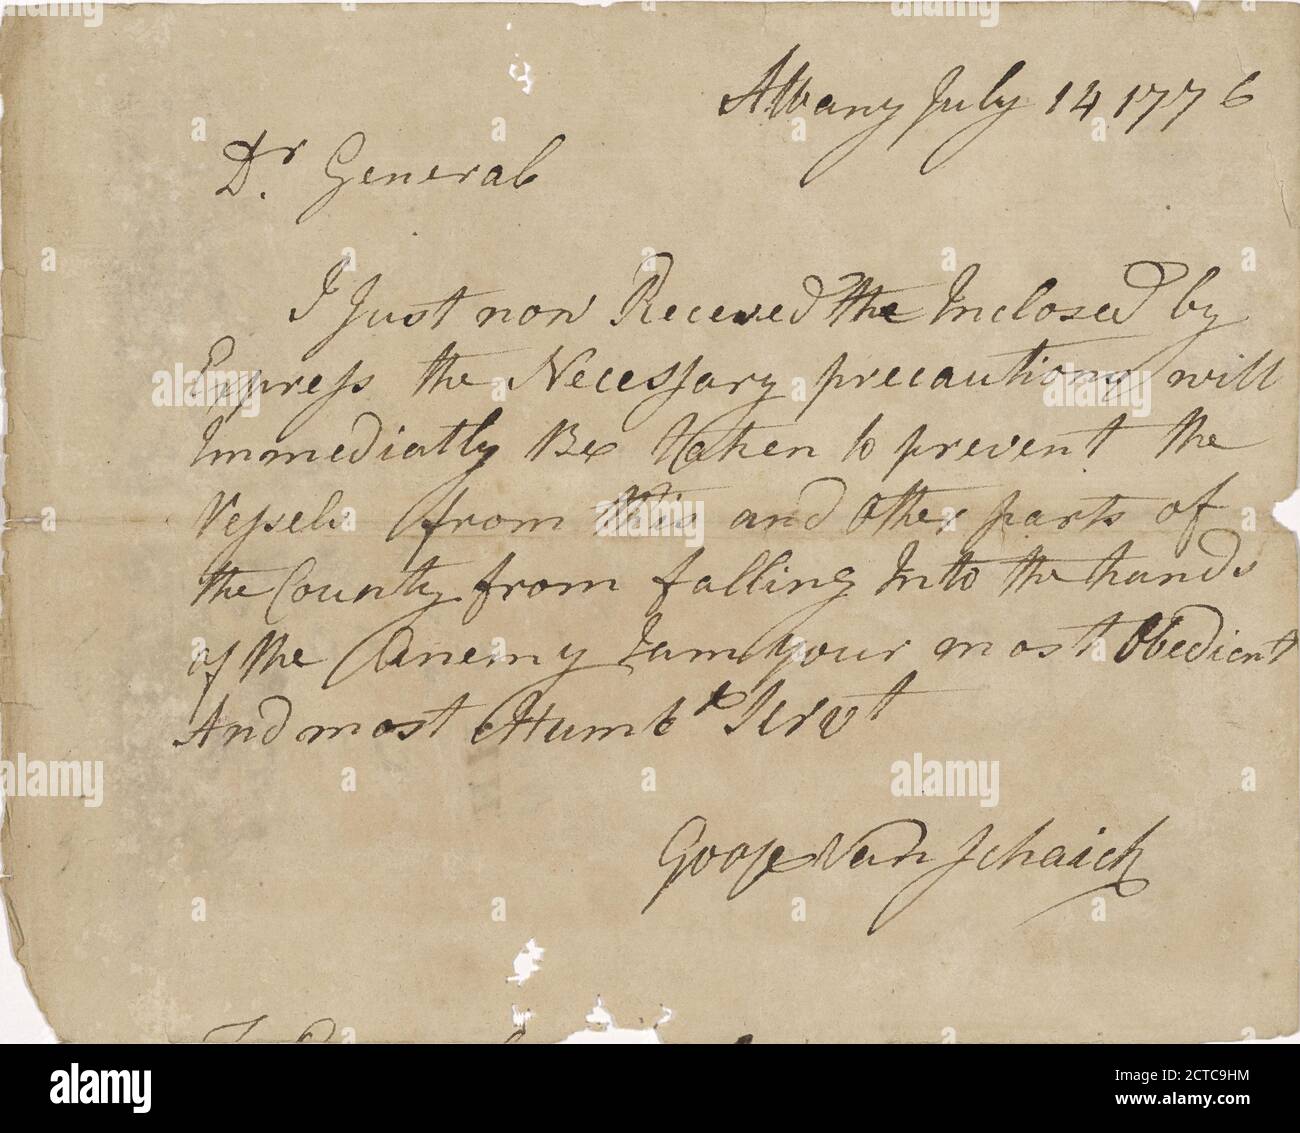 Albany July 14 1776
Dr. General
I Just now Receved the Inclosed by
Express the Necessary precautions will
Immediatly Be taken to prevent the
Vessels from this and other parts of
the County from falling Into the hands
of the Enemy I am your most Obedient
And most Humble Servt
Goose Van Schaick
alamy
Image ID: 2CTC9HM
www.alamy.com